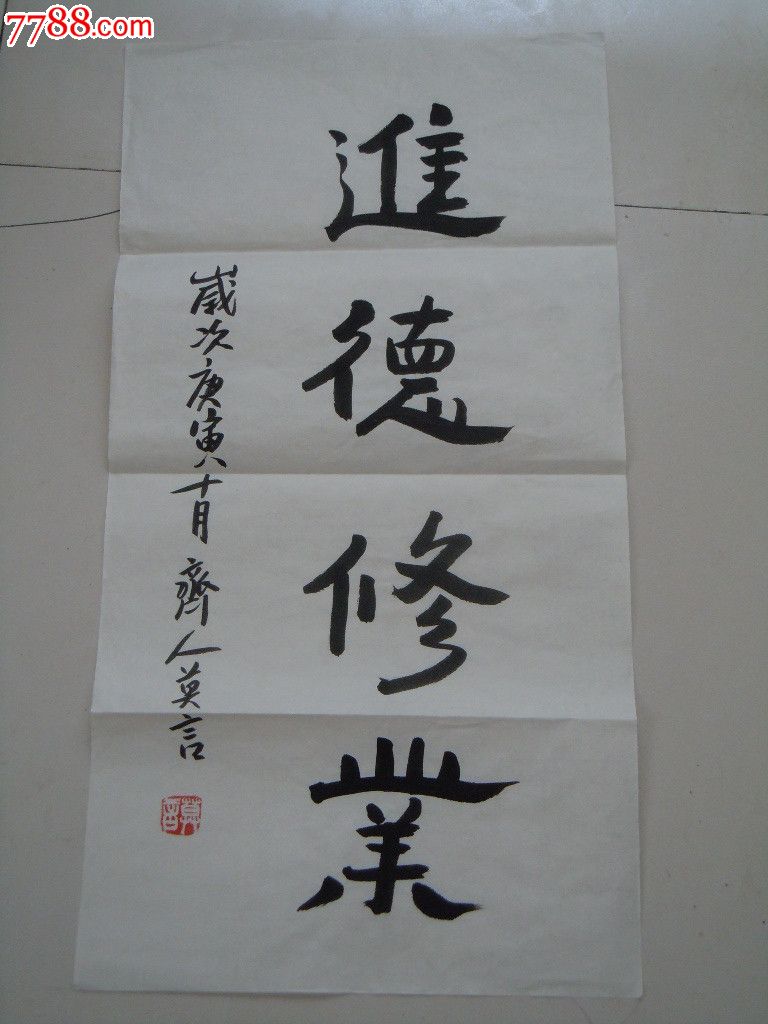 7788.com
進德修業
歲次庚寅十月 齊人莫言
莫言